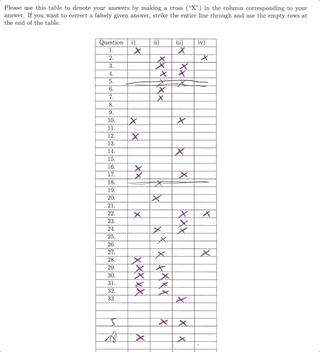 Please use this table to denote your answers by making a cross ("X") in the column corresponding to your
answer. If you want to correct a falsely given answer, strike the entire line through and use the empty rows at
the end of the table.
Question i) ii) iii) iv)
1. X X
2. X X
3. X X
4. X X
5. X X
6. X
7. X
8.
9.
10. X X
11.
12. X
13.
14. X
15.
16. X
17. X X
18. X
19.
20. X
21.
22. X X X
23. X
24. X X
25. X
26.
27. X X
28. X
29. X X
30. X X
31. X X
32. X X
33. X
5 X X
X X